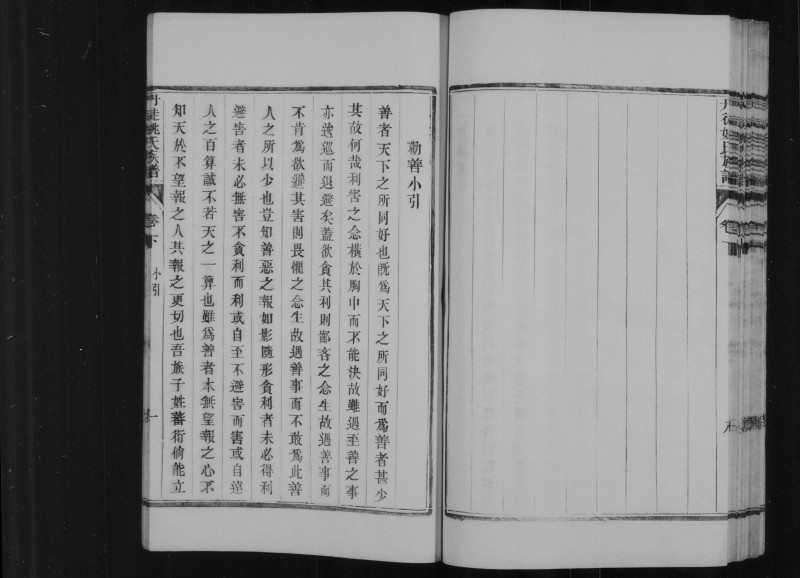 勸善小引
善者天下之所同好也既爲天下之所同好而爲善者甚少
其故何哉利害之念橫於胸中而不能決故雖遇至善之事
亦逡巡而退避矣蓋欲貪其利則鄙吝之念生故遇善事而
不肯爲欲避其害則畏懼之念生故遇善事而不敢爲此善
人之所以少也豈知善惡之報如影隨形貪利者未必得利
避害者未必無害不貪利而利或自至不避害而害或自遠
人之百算誠不若天之一算也雖爲善者本無望報之心不
知天於不望報之人其報之更切也吾族子姓蕃衍倘能立
姚氏族譜
卷下
小引
一